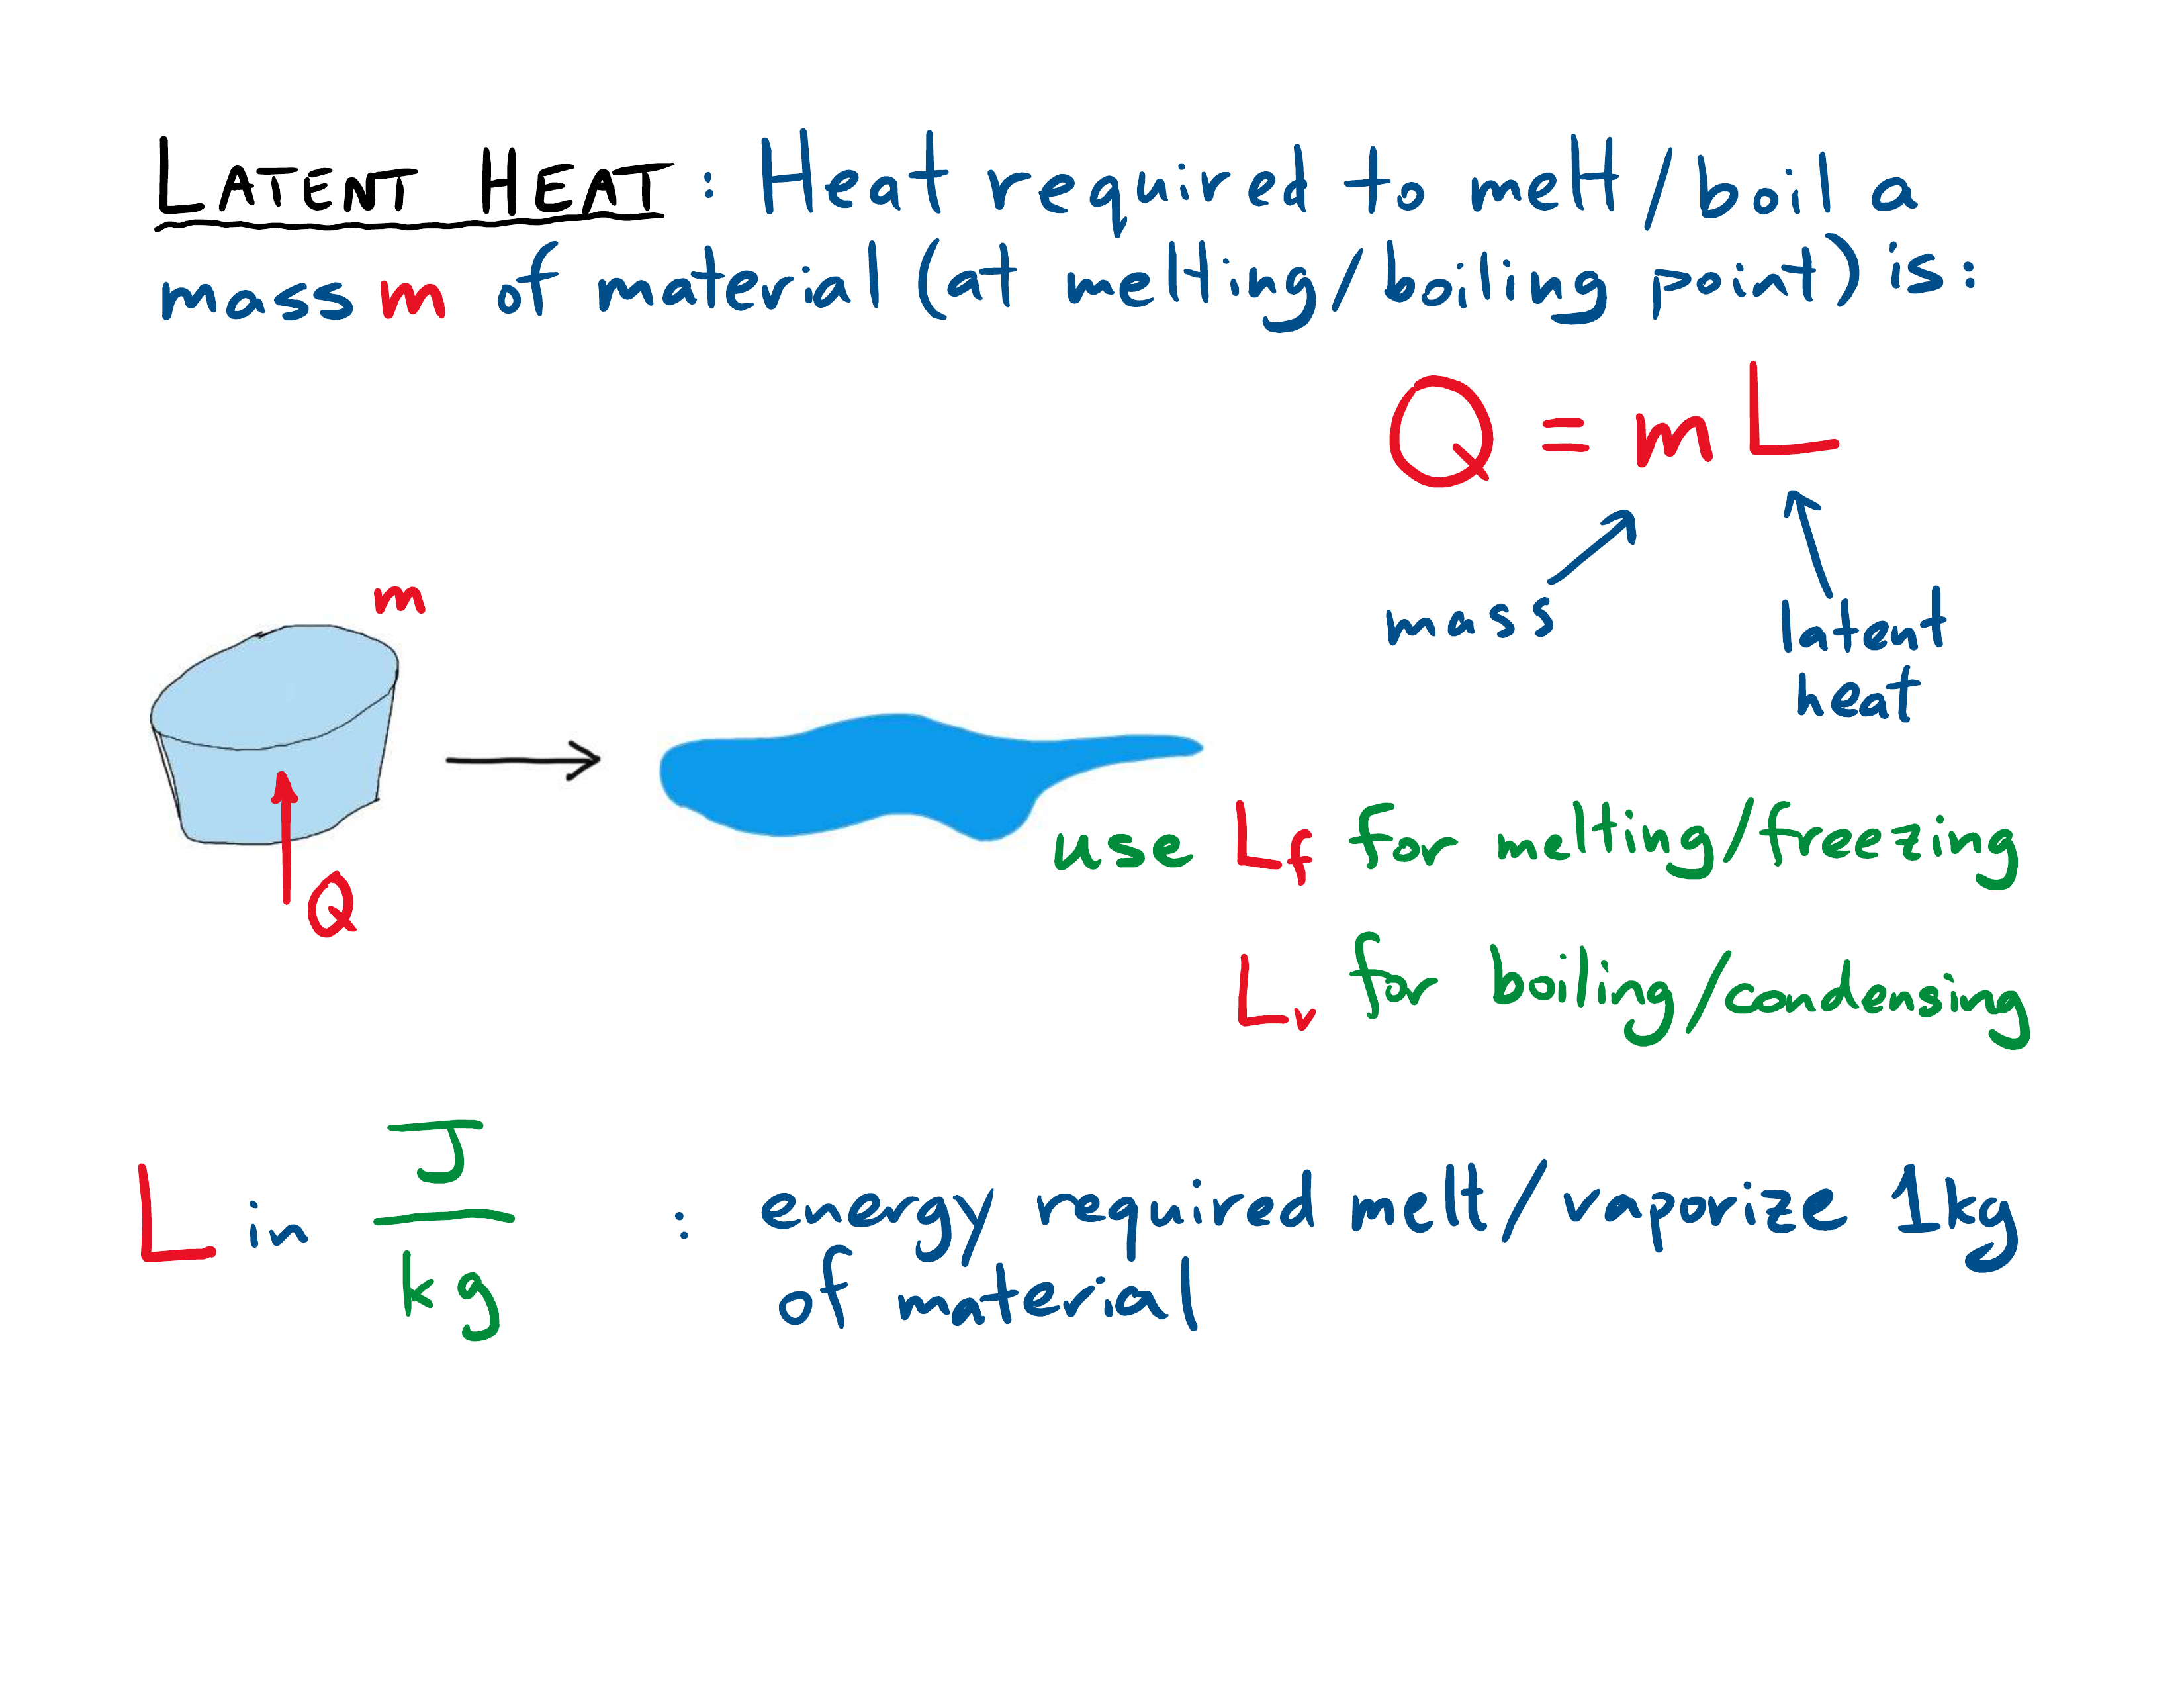 LATENT HEAT : Heat required to melt/boil a
mass m of material (at melting/boiling point) is:
Q = m L
mass
latent
heat
m
Q
use Lf for melting/freezing
Lv for boiling/condensing
L in J/kg : energy required melt/vaporize 1kg
of material